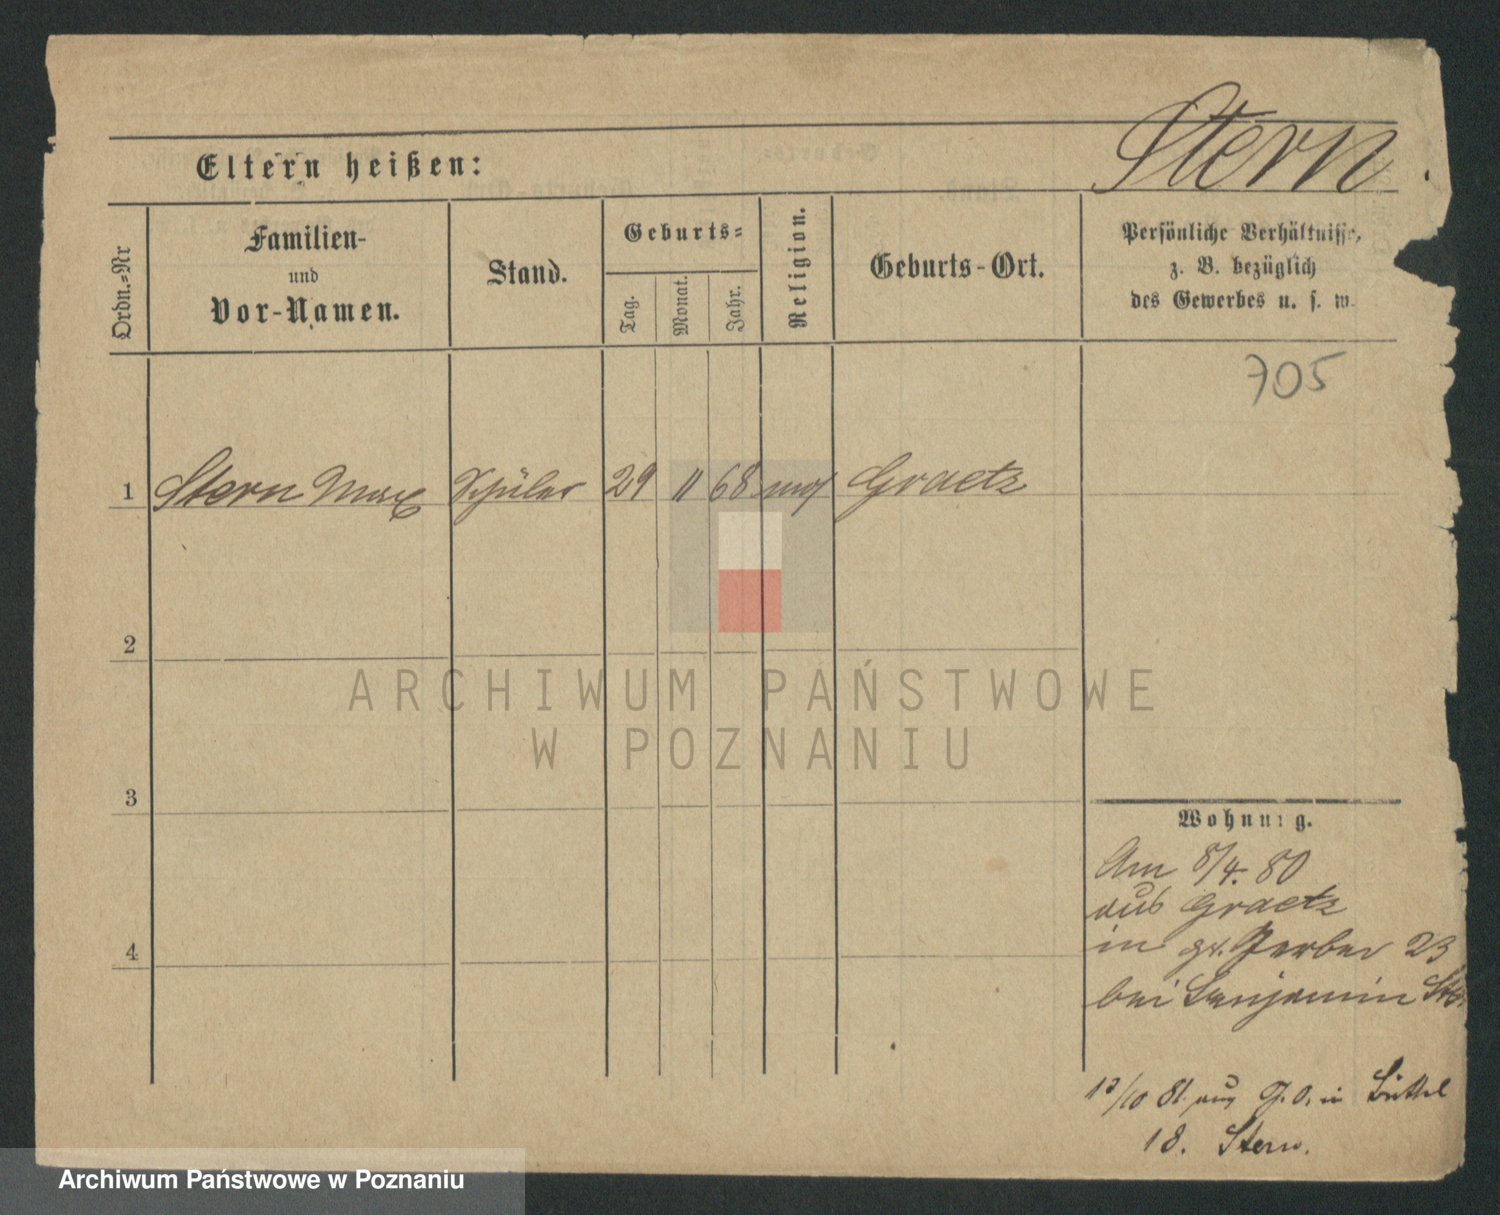 Stern
Eltern heißen:
Ordn.=Nr
Familien-
und
Vor-Namen.
Stand.
Geburts=
Tag.
Monat.
Jahr.
Religion.
Geburts-Ort.
Persönliche Verhältnisse,
z. B. bezüglich
des Gewerbes u. s. w.
705
1 Stern Max Schüler 29 11 68 mos Graetz
2
3
4
ARCHIWUM PAŃSTWOWE
W POZNANIU
Wohnung.
Am 8/4. 80
aus Graetz
in gr. Gerber 23
bei Benjamin
12/10 81. aus G. O. in Büttel
18. Stern.
Archiwum Państwowe w Poznaniu